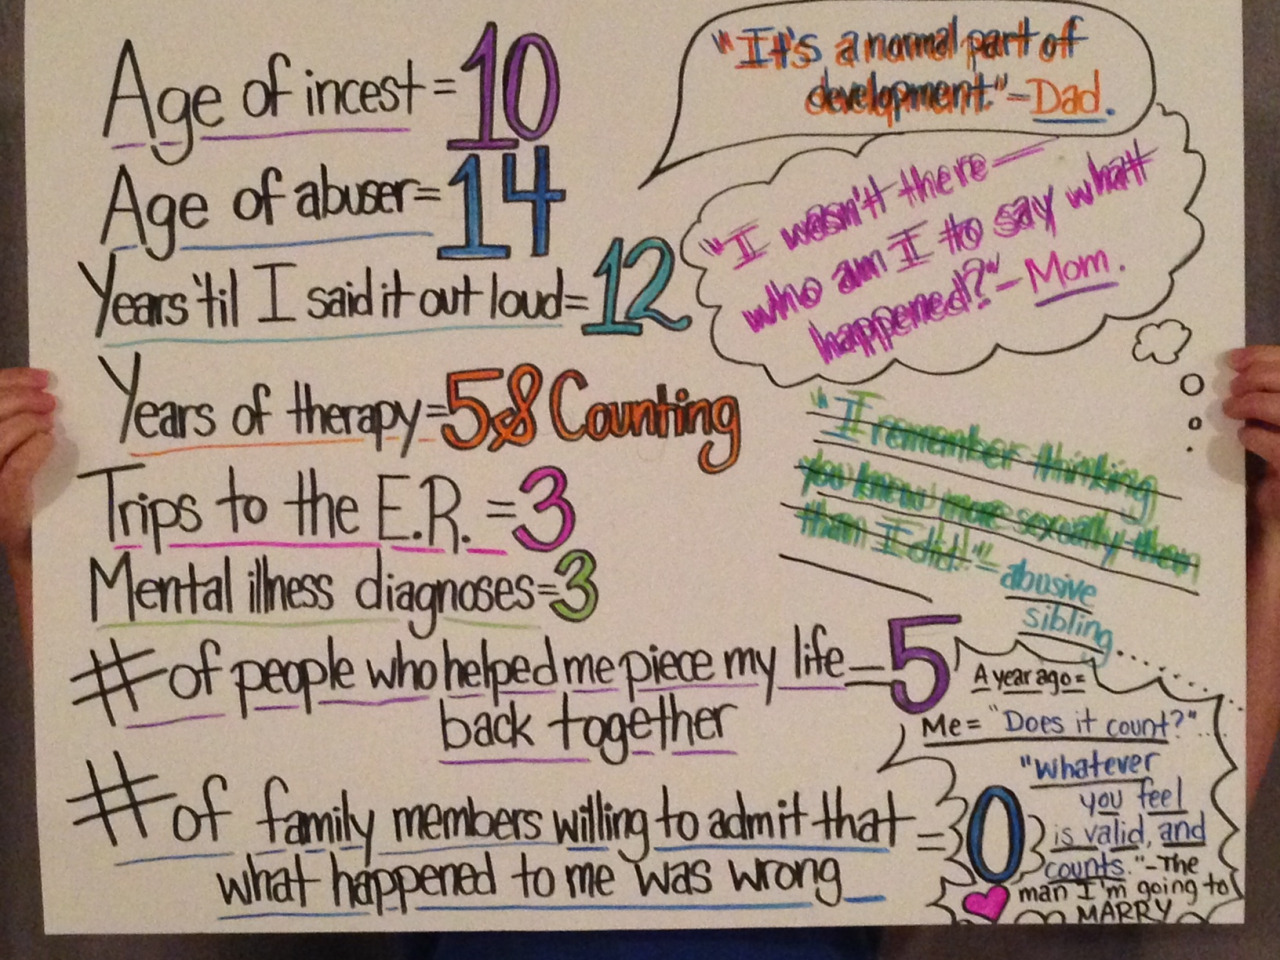 Age of incest = 10
Age of abuser = 14
Years 'til I said it out loud = 12
Years of therapy = 5 & Counting
Trips to the E.R. = 3
Mental illness diagnoses = 3
# of people who helped me piece my life = 5
back together
# of family members willing to admit that = 0
what happened to me was wrong
"It's a normal part of
development." - Dad.
"I wasn't there —
who am I to say what
happened?" - Mom.
"I remember thinking
you knew more sexually then
than I did." - abusive
sibling
A year ago =
Me = "Does it count?"
"Whatever
you feel
is valid, and
counts." - The
man I'm going to
MARRY